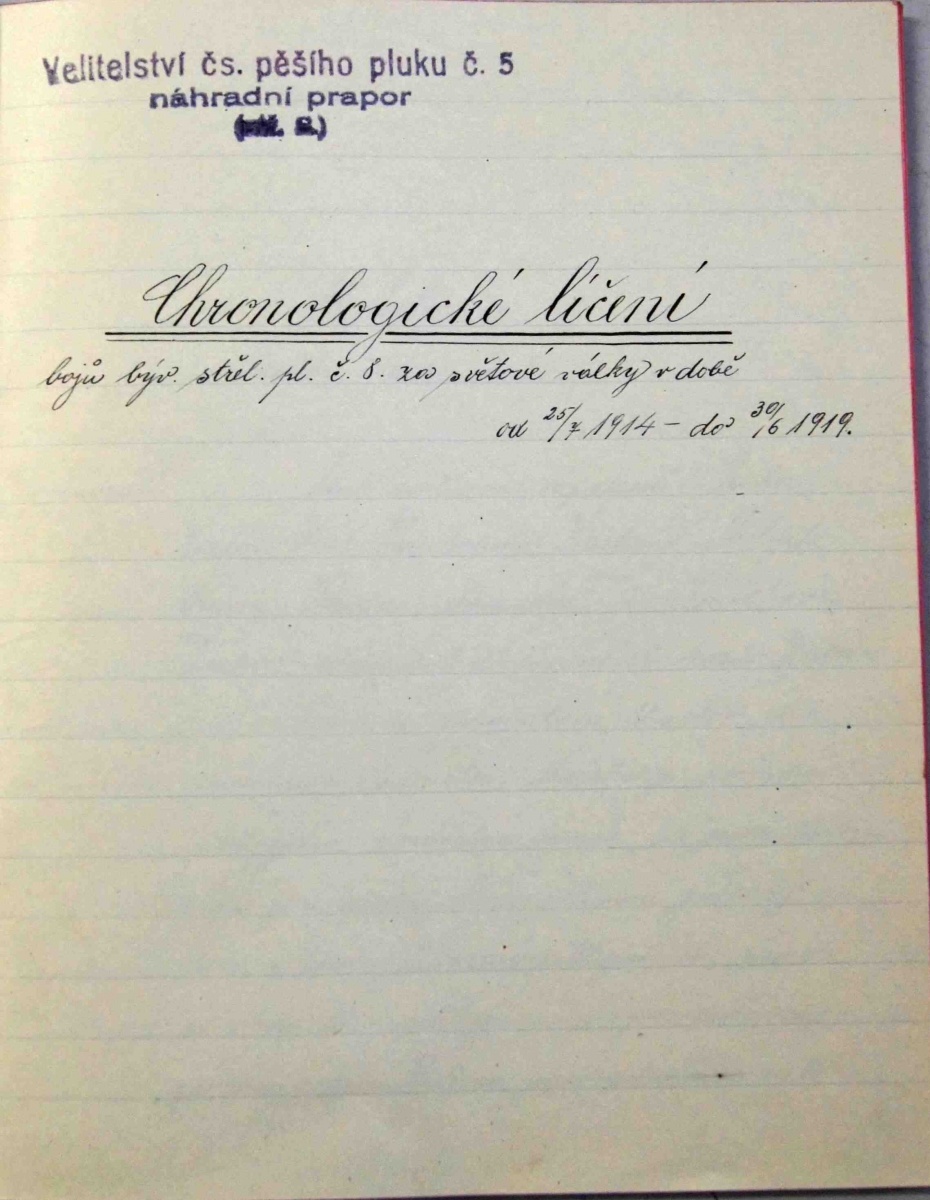 Velitelství čs. pěšího pluku č. 5
náhradní prapor
Chronologické líčení
bojů býv. střel. pl. č. 8. za světové války v době
od 25/7 1914 – do 30/6 1919.